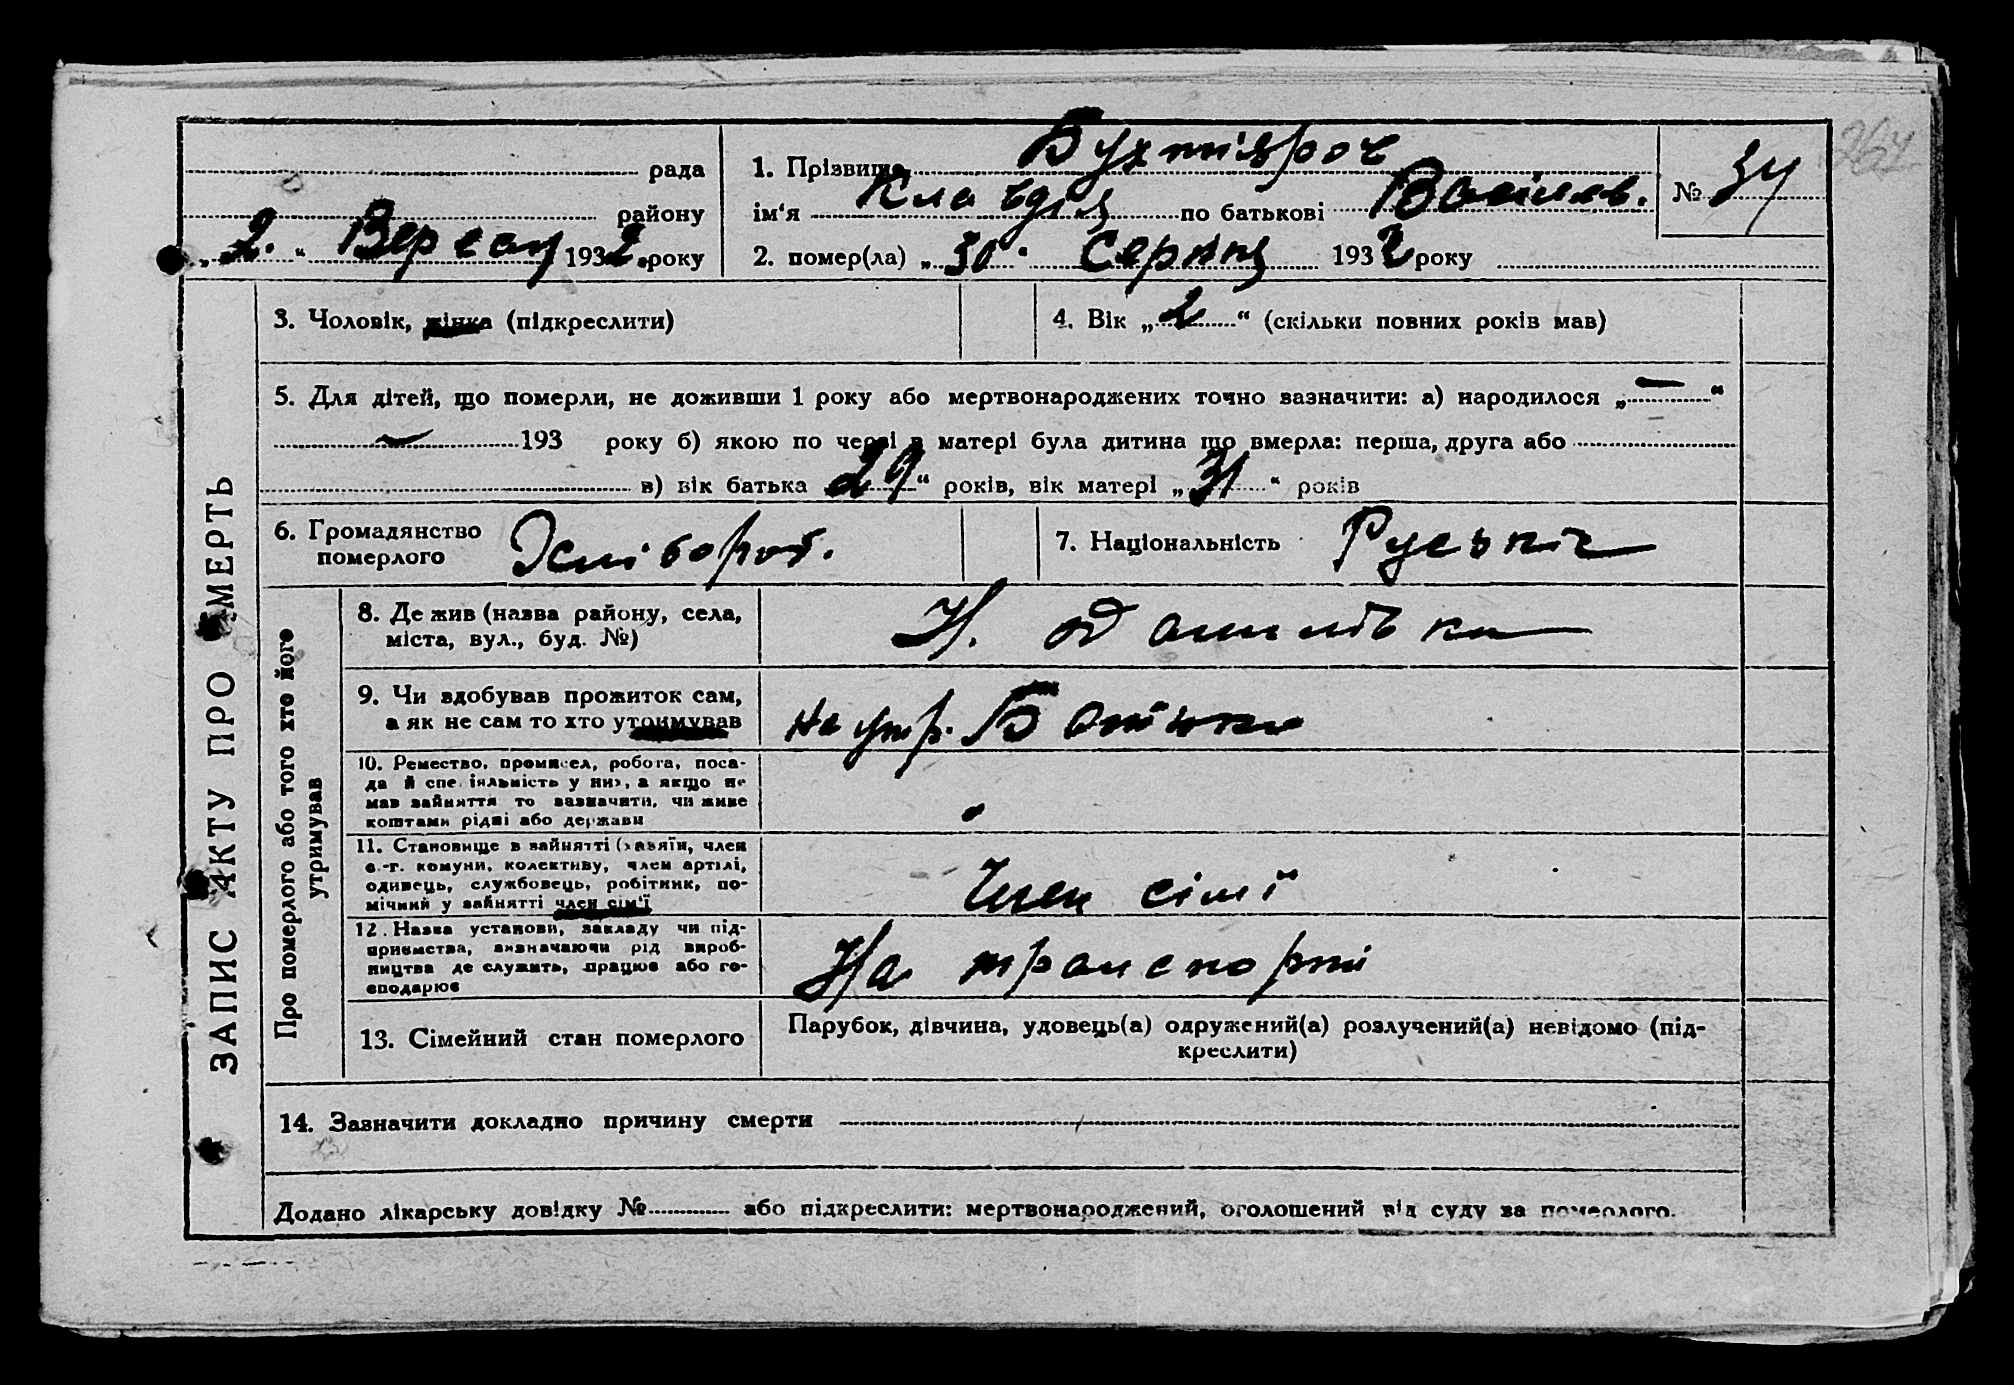 264
рада
району
„ 2. “ Вересня 1932 року
1. Прізвище
ім'я Клавдія по батькові Васілів.
2. помер(ла) „ 30 “ Серпня 1932 року
№ 34
ЗАПИС АКТУ ПРО СМЕРТЬ
3. Чоловік, жінка (підкреслити)
4. Вік „ 2 “ (скільки повних років мав)
5. Для дітей, що померли, не доживши 1 року або мертвонароджених точно вазначити: а) народилося „ — “
193 року б) якою по черзі в матері була дитина що вмерла: перша, друга або
в) вік батька 29 “ років, вік матері „ 31 “ років
6. Громадянство
померлого
7. Національність
Про померлого або того хто його
утримував
8. Де жив (назва району, села,
міста, вул., буд. №)
9. Чи здобував прожиток сам,
а як не сам то хто утримував
на утр. Батька
10. Ремество, промисел, робота, поса-
да й спеціяльність у них, а якщо не
мав зайняття то зазначити, чи живе
коштами рідні або держави
11. Становище в зайнятті (хазяїн, член
с.-г. комуни, колективу, член артілі,
одинець, службовець, робітник, по-
мічний у зайнятті член сім'ї
Член сімї
12. Назва установи, закладу чи під-
приємства, визначаючи рід вироб-
ництва де служить, працює або го-
сподарює
На транспорті
13. Сімейний стан померлого
Парубок, дівчина, удовець(а) одружений(а) розлучений(а) невідомо (під-
креслити)
14. Зазначити докладно причину смерти
Додано лікарську довідку № або підкреслити: мертвонароджений, оголошений від суду за померлого.